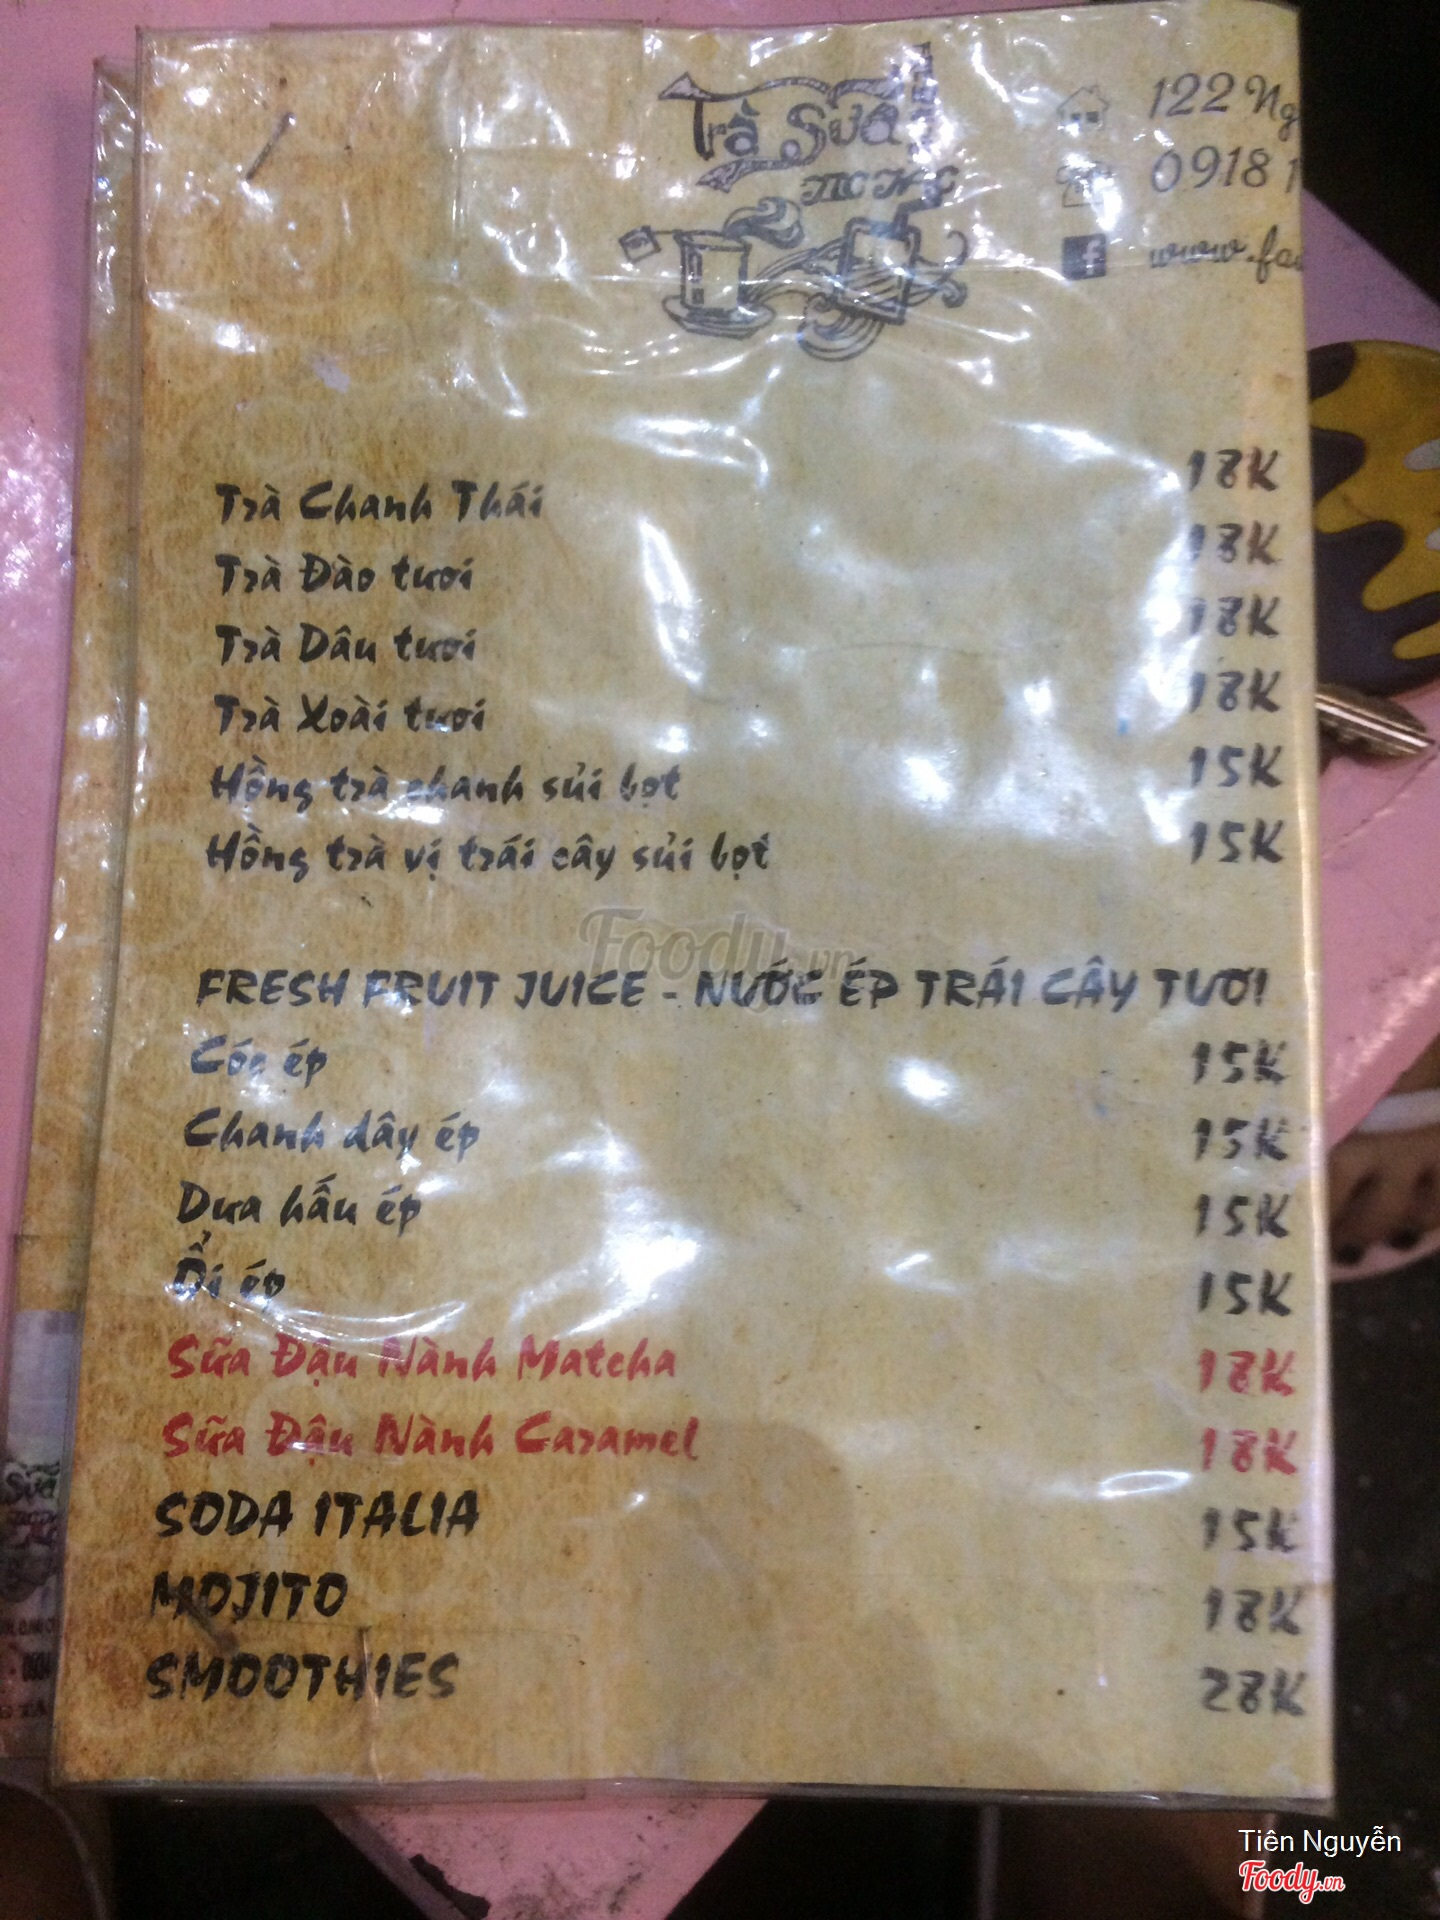 Trà Sữa
122 Ng
0918 1
www.fa
Trà Chanh Thái 18K
Trà Đào tươi 18K
Trà Dâu tươi 18K
Trà Xoài tươi 18K
Hồng trà chanh sủi bọt 15K
Hồng trà vị trái cây sủi bọt 15K
Foody.vn
FRESH FRUIT JUICE - NƯỚC ÉP TRÁI CÂY TƯƠI
Cóc ép 15K
Chanh dây ép 15K
Dưa hấu ép 15K
Ổi ép 15K
Sữa Đậu Nành Matcha 18K
Sữa Đậu Nành Caramel 18K
SODA ITALIA 15K
MOJITO 18K
SMOOTHIES 28K
Tiên Nguyễn
Foody.vn